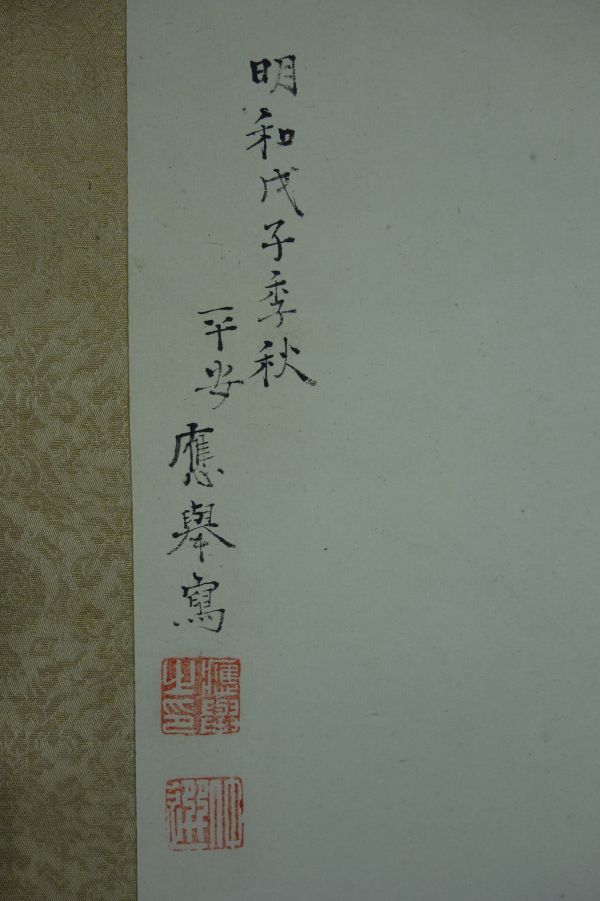 明和戊子季秋
平安
應舉寫
應舉之印
仲選